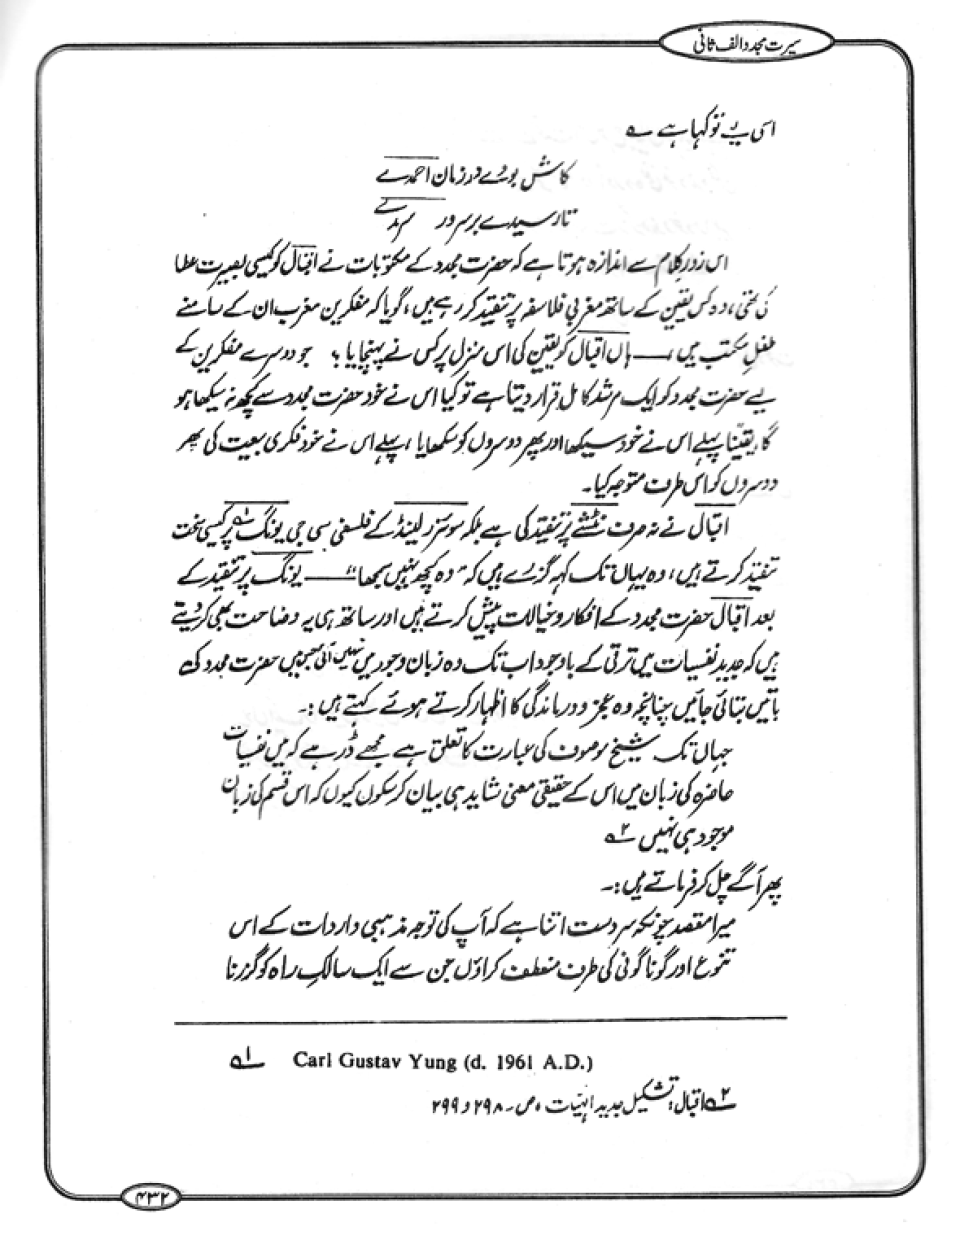 سیرت مجدد الف ثانی
اسی لیے تو کہا ہے ؎
کاش بودے در زمان احمدے
تا رسیدے بر سرور سرمدے
اس زورِ کلام سے اندازہ ہوتا ہے کہ حضرت مجدد کے مکتوبات نے اقبال کو کیسی بصیرت عطا
کی تھی، وہ کس یقین کے ساتھ مغربی فلاسفہ پر تنقید کر رہے ہیں، گویا کہ مفکرین مغرب ان کے سامنے
طفلِ مکتب ہیں، ـــــ ہاں اقبال کو یقین کی اس منزل پر کس نے پہنچایا؟ جو دوسرے مفکرین کے
لیے حضرت مجدد کو ایک مرشد کامل قرار دیتا ہے تو کیا اس نے خود حضرت مجدد سے کچھ نہ سیکھا ہو
گا، یقیناً پہلے اس نے خود سیکھا اور پھر دوسروں کو سکھایا، پہلے اس نے خود فکری بیعت کی پھر
دوسروں کو اس طرف متوجہ کیا۔
اقبال نے نہ صرف نٹشے پر تنقید کی ہے بلکہ سوئزرلینڈ کے فلسفی سی جی یونگ ۱؎ پر کیسی سخت
تنقید کرتے ہیں، وہ یہاں تک کہہ گزرے ہیں کہ "وہ کچھ نہیں سمجھا" ـــــ یونگ پر تنقید کے
بعد اقبال حضرت مجدد کے افکار و خیالات پیش کرتے ہیں اور ساتھ ہی یہ وضاحت بھی کر دیتے
ہیں کہ جدید نفسیات میں ترقی کے باوجود اب تک وہ زبان وجود میں نہیں آئی جس میں حضرت مجدد کی
باتیں بتائی جائیں چنانچہ وہ عجز و درماندگی کا اظہار کرتے ہوئے کہتے ہیں:۔
جہاں تک شیخ موصوف کی عبارت کا تعلق ہے مجھے ڈر ہے کہ میں نفسیات
حاضرہ کی زبان میں اس کے حقیقی معنی شاید ہی بیان کر سکوں کیوں کہ اس قسم کی زبان
موجود ہی نہیں ۲؎
پھر آگے چل کر فرماتے ہیں:۔
میرا مقصد چونکہ سردست اتنا ہے کہ آپ کی توجہ مذہبی واردات کے اس
تنوع اور گوناگونی کی طرف منعطف کراؤں جن سے ایک سالکِ راہ کو گزرنا
۱؎ Carl Gustav Yung (d. 1961 A.D.)
۲؎ اقبال: تشکیل جدید الٰہیات، ص۔ ۲۹۸ و ۲۹۹
۴۳۲